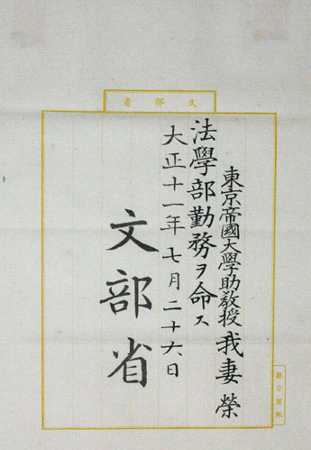 文部省
東京帝國大學助教授 我妻榮
法學部勤務ヲ命ス
大正十一年七月二十六日
文部省